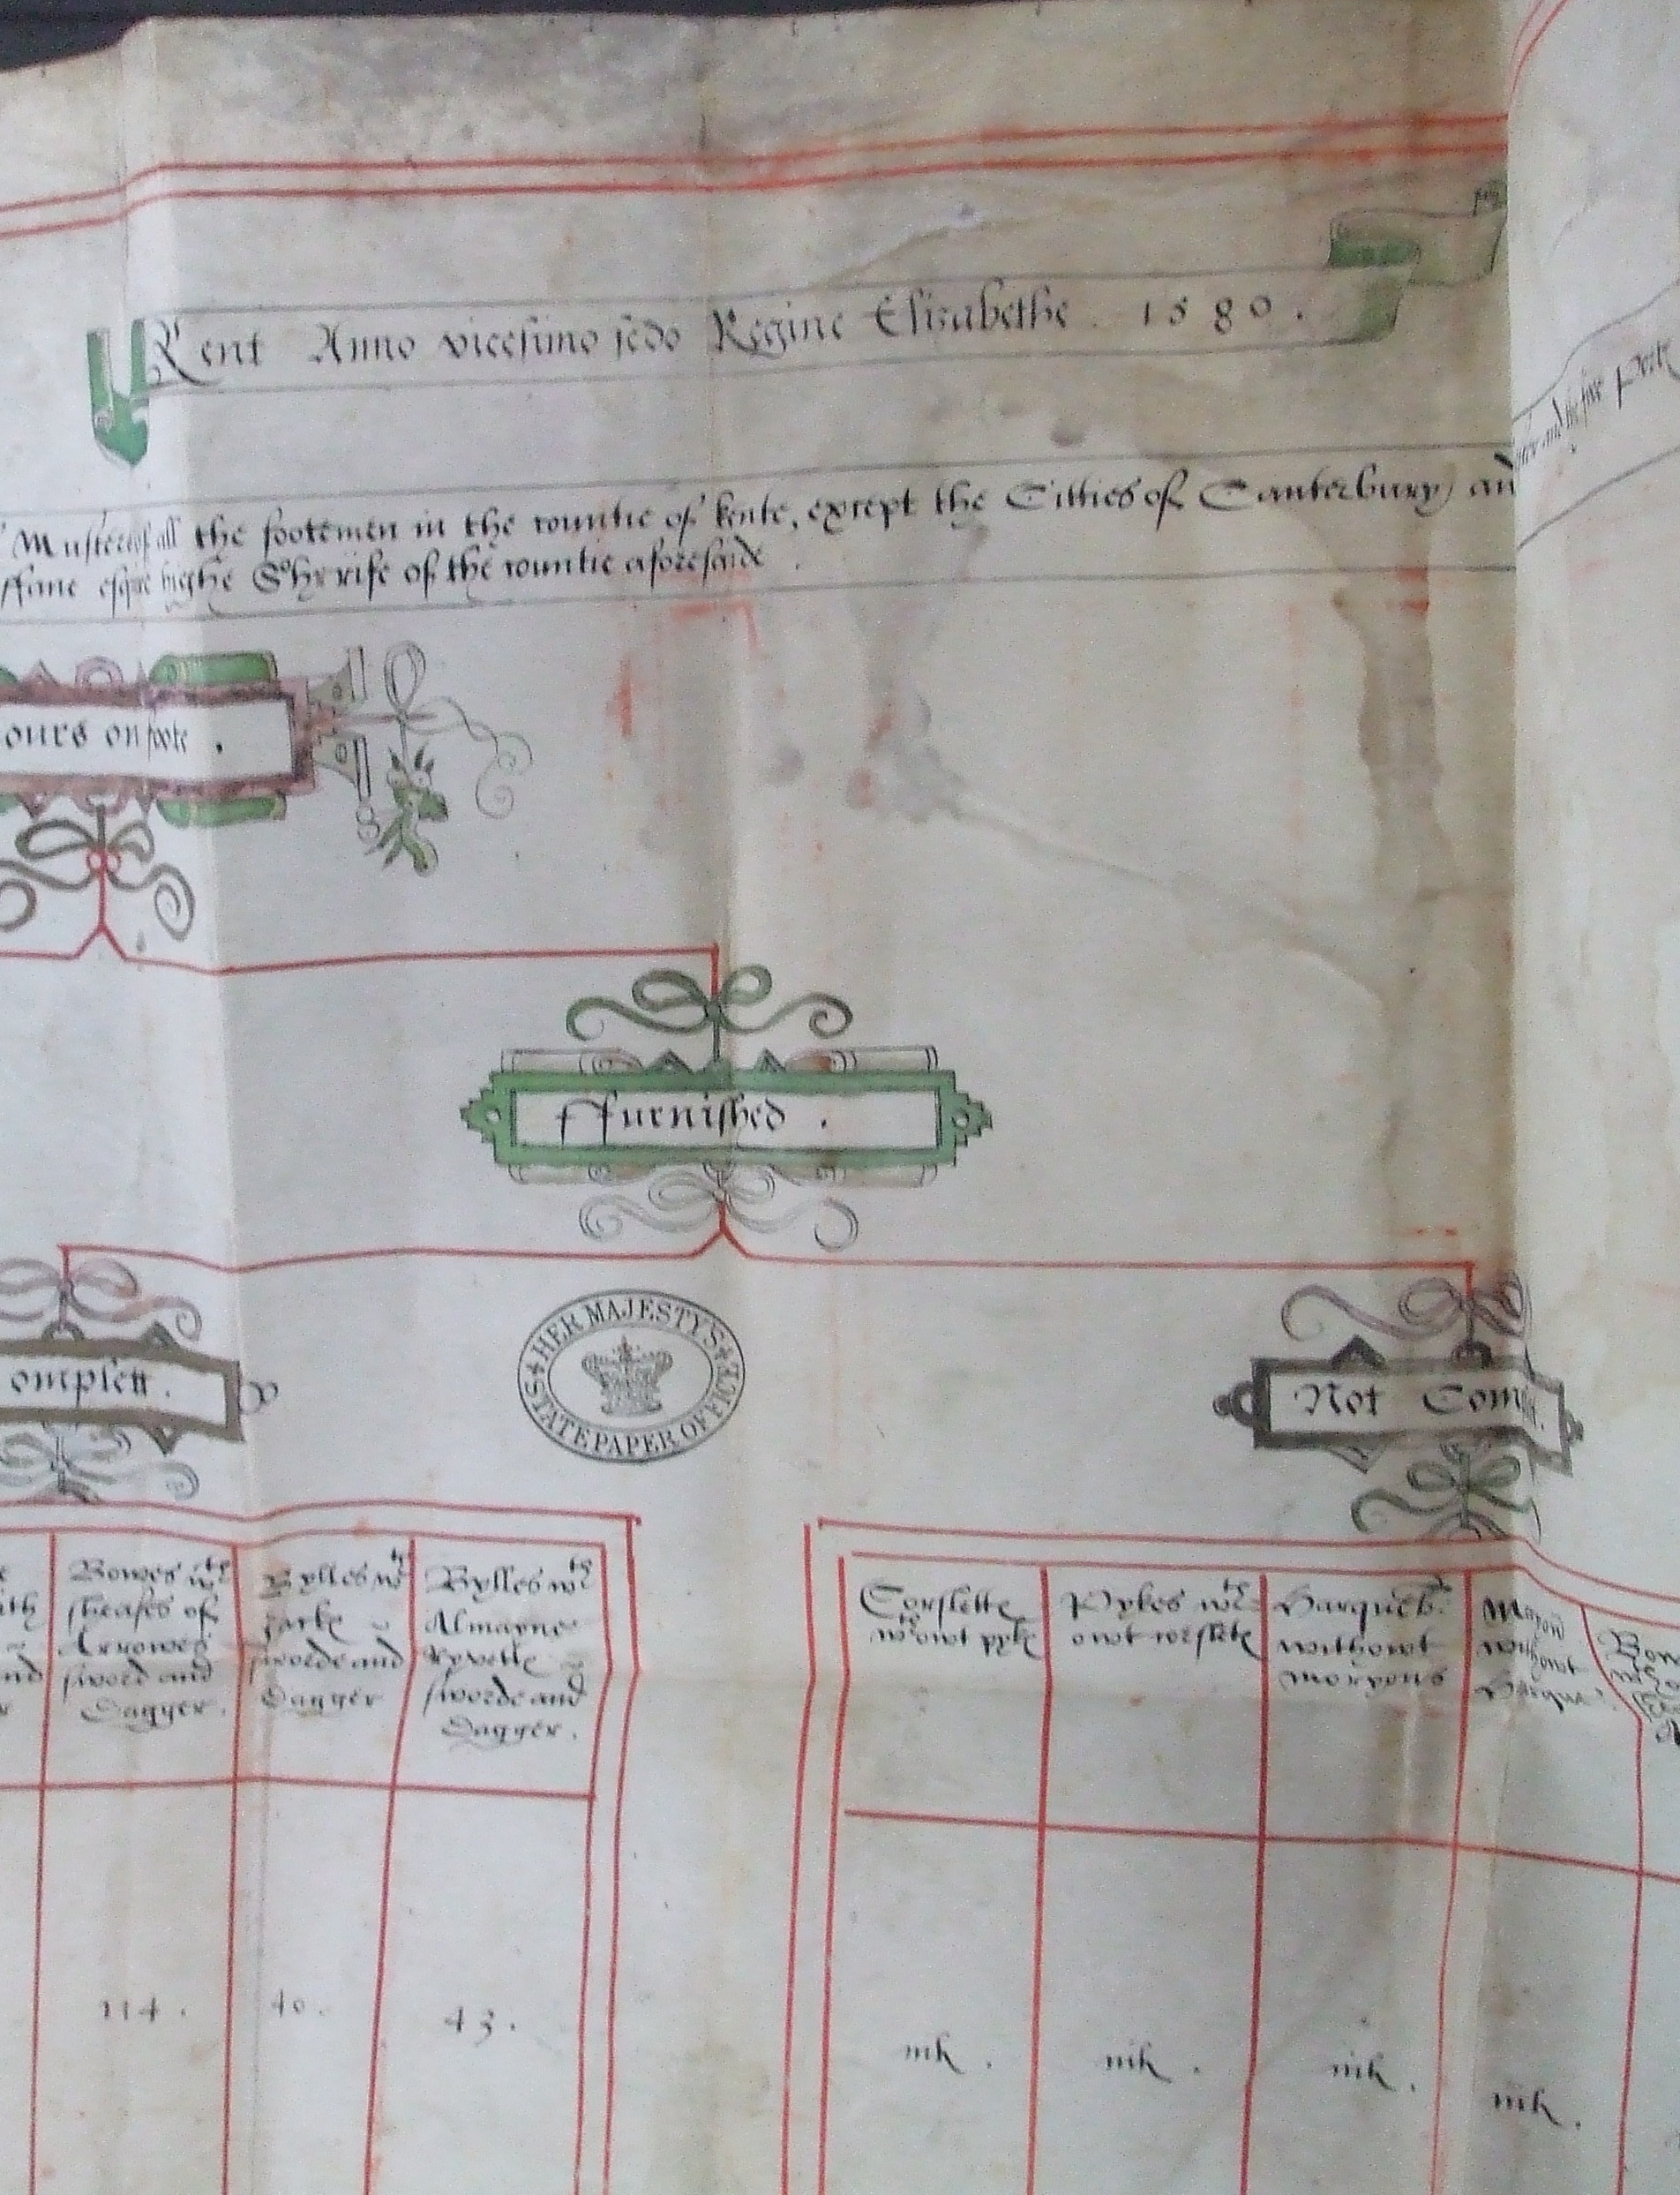 Kent Anno vicesimo scdo Regine Elizabethe . 1580 .
Musters of all the footemen in the countie of kente, except the Citties of Canterbury) and
and the five Portes
ffane esquie highe Shyrife of the countie aforesaide .
ours on foote .
ffurnished .
HER MAJESTYS STATE PAPER OFFICE
omplett .
Not Complet .
Bowes wth
sheafes of
Arrowes
sword and
Dagger .
Bylles wth
Jacke
sworde and
Dagger
Bylles wth
Almayne
Ryvette
sworde and
Dagger .
Corslette
wthowt pyke
Pykes wth
owt corslete
Harqueb:
withowt
moryons
Moryons
withowt
Harque:
114 .
40 .
43 .
nih .
nih .
nih .
nih .